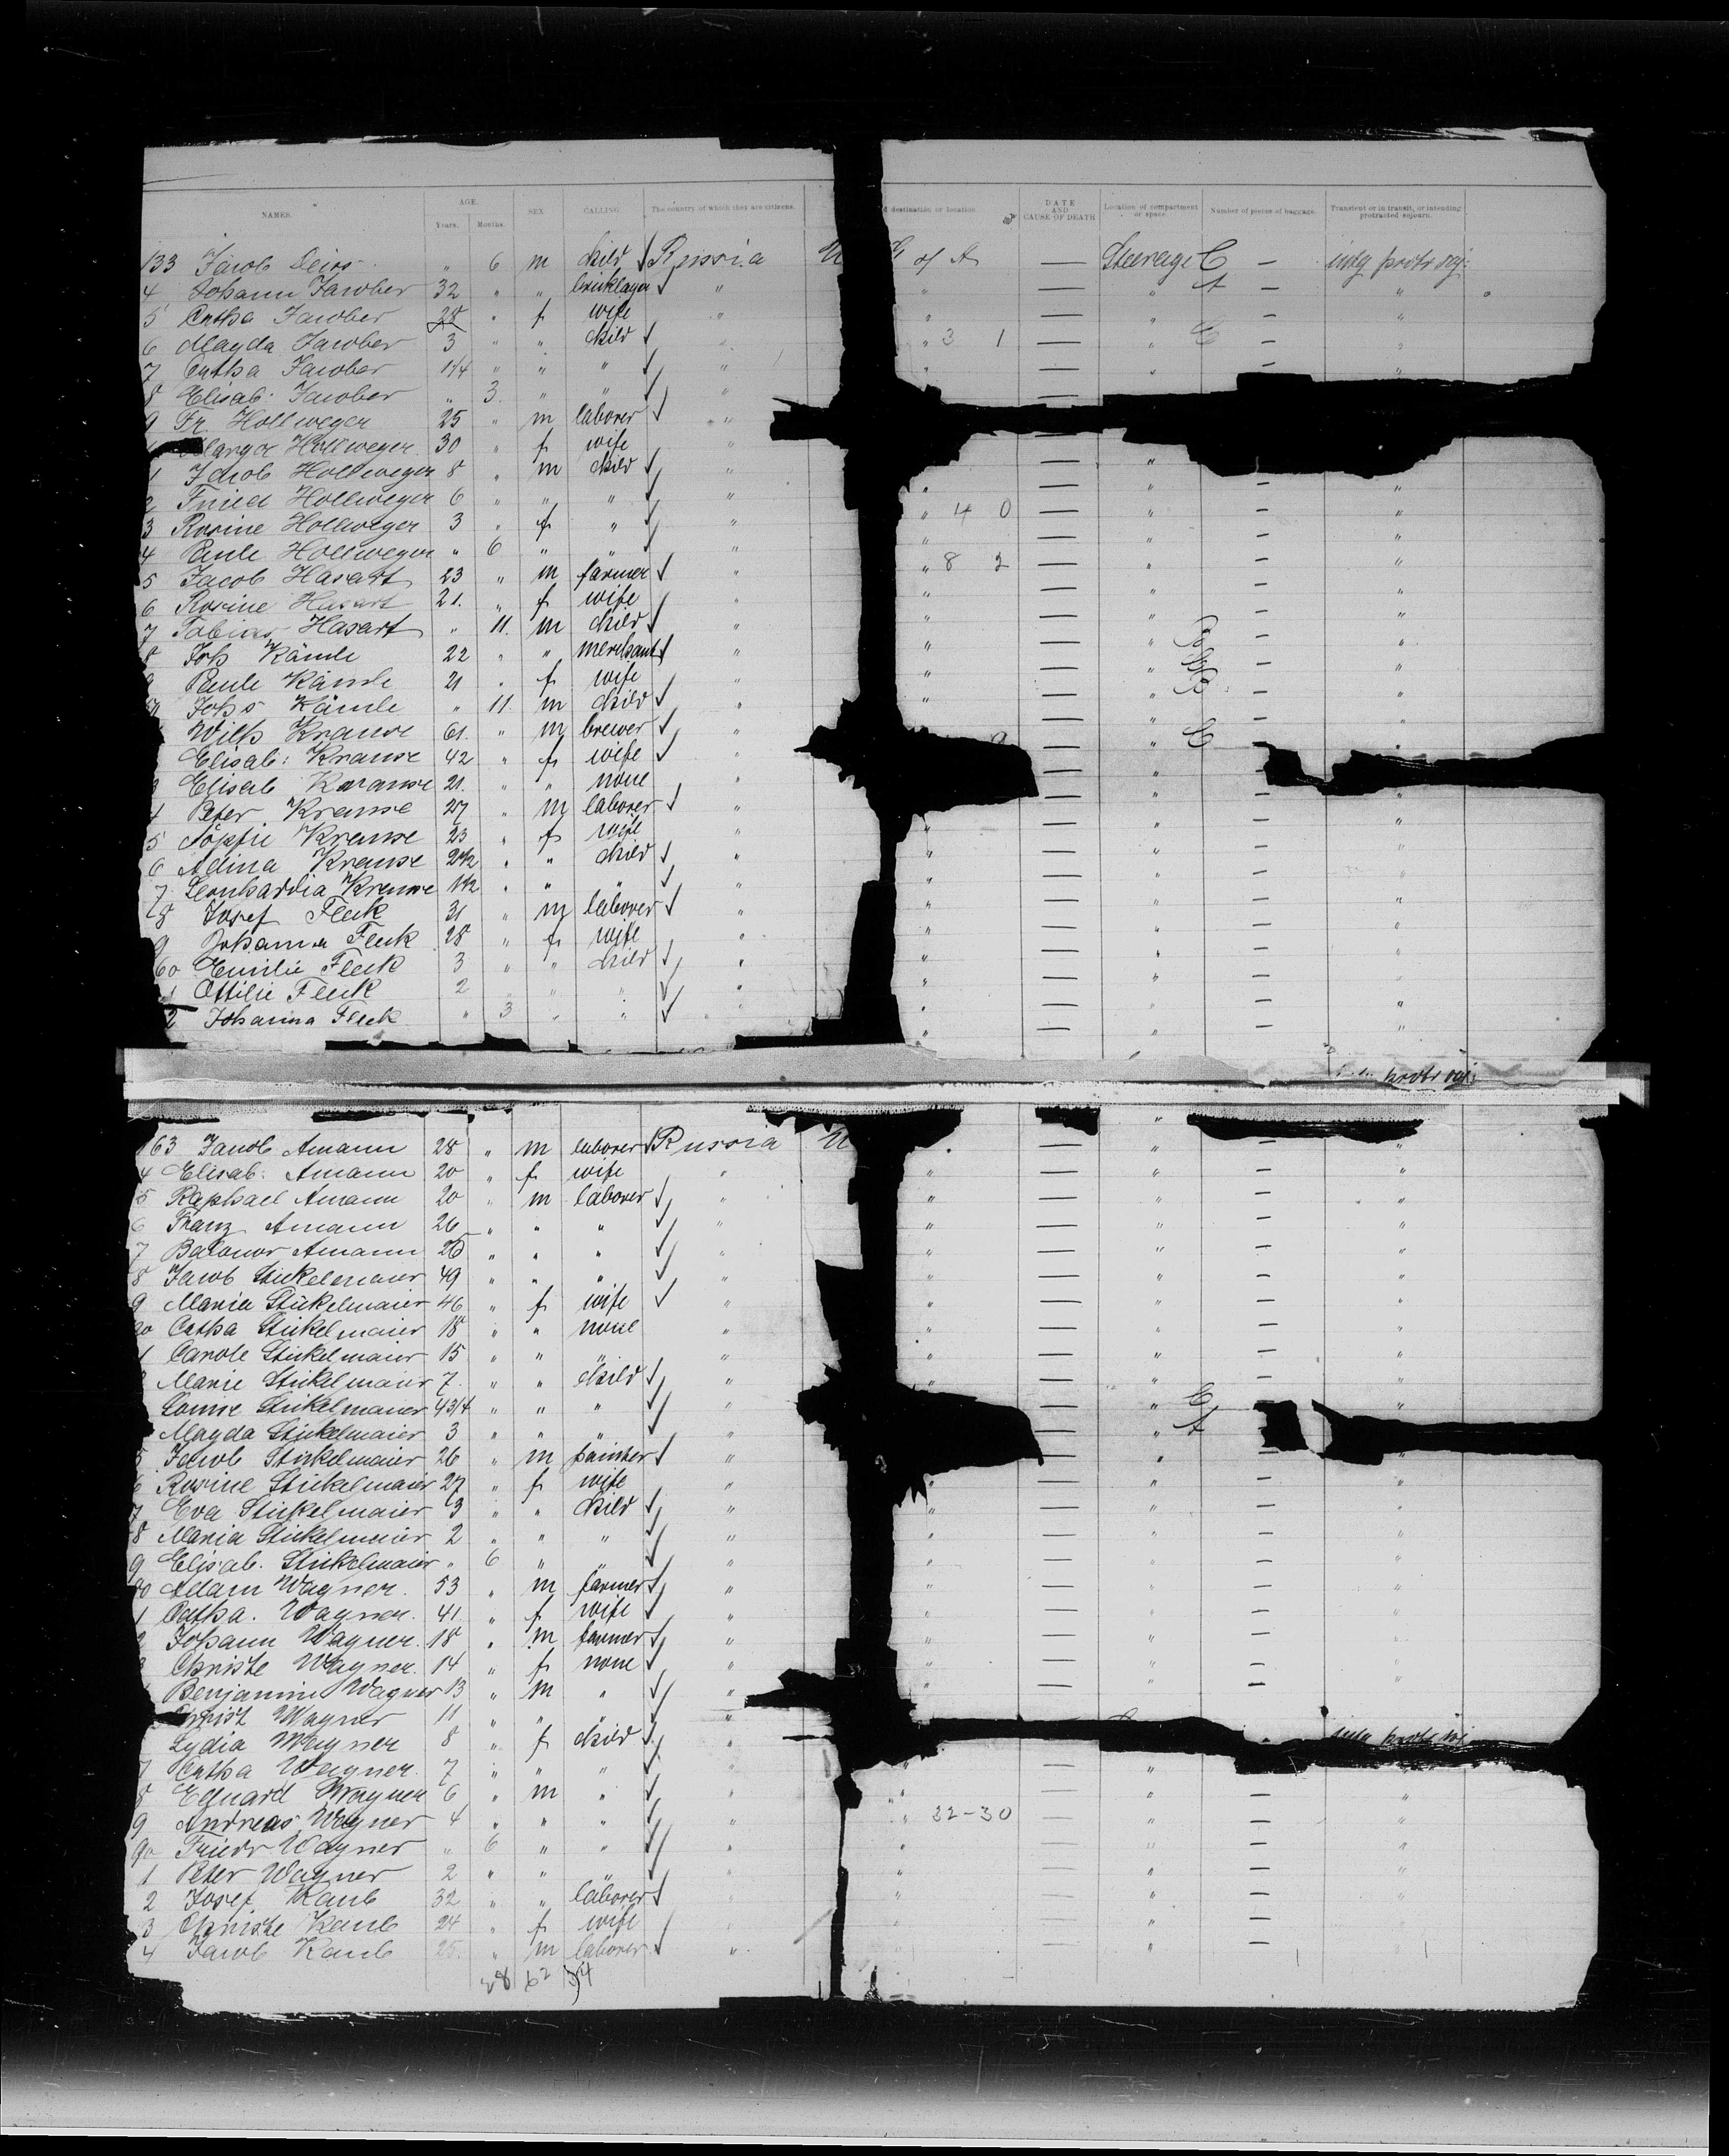 NAMES. AGE. Years. Months. SEX. CALLING. The country of which they are citizens. d destination or location. DATE AND CAUSE OF DEATH Location of compartment or space. Number of pieces of baggage. Transient or in transit, or intending protracted sojourn.
133 Jacob " 6 m child ✓ Russia U of A — Steerage C —
4 Johann Jacober 32 " " bricklayer ✓ " " — " A — "
5 Catha Jacober 28 " f wife " " — " — "
6 Magda Jacober 3 " " child ✓ " " 3 1 — " C — "
7 Catha Jacober 1 1/4 " " " ✓ " " — " — "
8 Elisab: Jacober " 3 " " ✓ " —
9 Fr. Hollweger 25 " m laborer ✓ "
Marga Hollweger 30 " f wife " —
1 Jacob Hollweger 8 " m child ✓ " — "
2 Fried Hollweger 6 " " " ✓ " " — " — "
3 Rosine Hollweger 3 " f " ✓ " " 4 0 — " — "
4 Paule Hollweger " 6 " " ✓ " " — " — "
5 Jacob Hasart 23 " m farmer ✓ " " 8 2 — " — "
6 Rosine Hasart 21. " f wife " " — " — "
7 Tobias Hasart " 11. m child ✓ " " — " — "
8 Joh Kämle 22 " " merchant ✓ " " — " — "
9 Paule Kämle 21 " f wife " " — " — "
Johs Kämle " 11. m child ✓ " " — " — "
Wilh Krause 61. " m brewer ✓ " — " C — "
Elisab: Krause 42 " f wife ✓ " — "
Elisab Krause 21. " " none " — " — "
4 Peter Krause 27 " m laborer ✓ " — " — "
5 Sophie Krause 23 " f wife " " — " — "
6 Adina Krause 2 1/2 " " child ✓ " " — " — "
7 Leonhardia Krause 1 1/2 " " " ✓ " " — " — "
8 Josef Fleck 31 " m laborer ✓ " " — " — "
9 Johanna Fleck 28 " f wife " " — " — "
60 Emilie Fleck 3 " " child ✓ " " — " — "
1 Ottilie Fleck 2 " " " ✓ " " — " — "
2 Johanna Fleck " 3 " " ✓ " " — " — "
163 Jacob Amann 28 " m laborer ✓ Russia U — " — "
4 Elisab: Amann 20 " f wife " " — " — "
5 Raphael Amann 20 " m laborer ✓ " " — " — "
6 Franz Amann 26 " " " ✓ " " — " — "
7 Amann 26 " " " ✓ " " — " — "
8 Jacob Stickelmaier 49 " " " ✓ " " — " — "
9 Maria Stickelmaier 46 " f wife ✓ " " — " — "
70 Catha Stickelmaier 18 " " none " " — " — "
1 Carole Stickelmaier 15 " " " " " — " — "
Marie Stickelmaier 7. " " child ✓ " " — " — "
Stickelmaier 4 3/4 " " " ✓ " — " C "
Magda Stickelmaier 3 " " " ✓ " — " A
5 Jacob Stickelmaier 26 " m painter ✓ " — " — "
6 Rosine Stickelmaier 27 " f wife " " — " — "
7 Eva Stickelmaier 3 " " child ✓ " " — " — "
8 Maria Stickelmaier 2 " " " ✓ " " — " — "
9 Elisab. Stickelmaier " 6 " " ✓ " " — " — "
80 Adam Wagner. 53 " m farmer ✓ " " — " — "
1 Catha. Wagner. 41. " f wife ✓ " " — " — "
2 Johann Wagner. 18 " m farmer ✓ " " — " — "
Christe Wagner. 14 " f none ✓ " " — " — "
Benjamine Wagner 13 " m " ✓ " " — " — "
Christ Wagner 11 " " " ✓ "
Lydia Wagner 8 " f child ✓ "
7 Catha Wagner 7 " " " ✓ " " — " — "
8 Eduard Wagner 6 " m " ✓ " " — " — "
9 Andreas Wagner 4 " " " ✓ " " 22-30 — " — "
90 Friedr Wagner " 6 " " ✓ " " — " — "
1 Peter Wagner 2 " " " ✓ " — " — "
2 Josef Kaub 32 " " laborer ✓ " — " — "
3 Christe Kaub 24 " f wife — " — "
4 Jacob Kaub 25. " m laborer ✓ " — " —
62 34